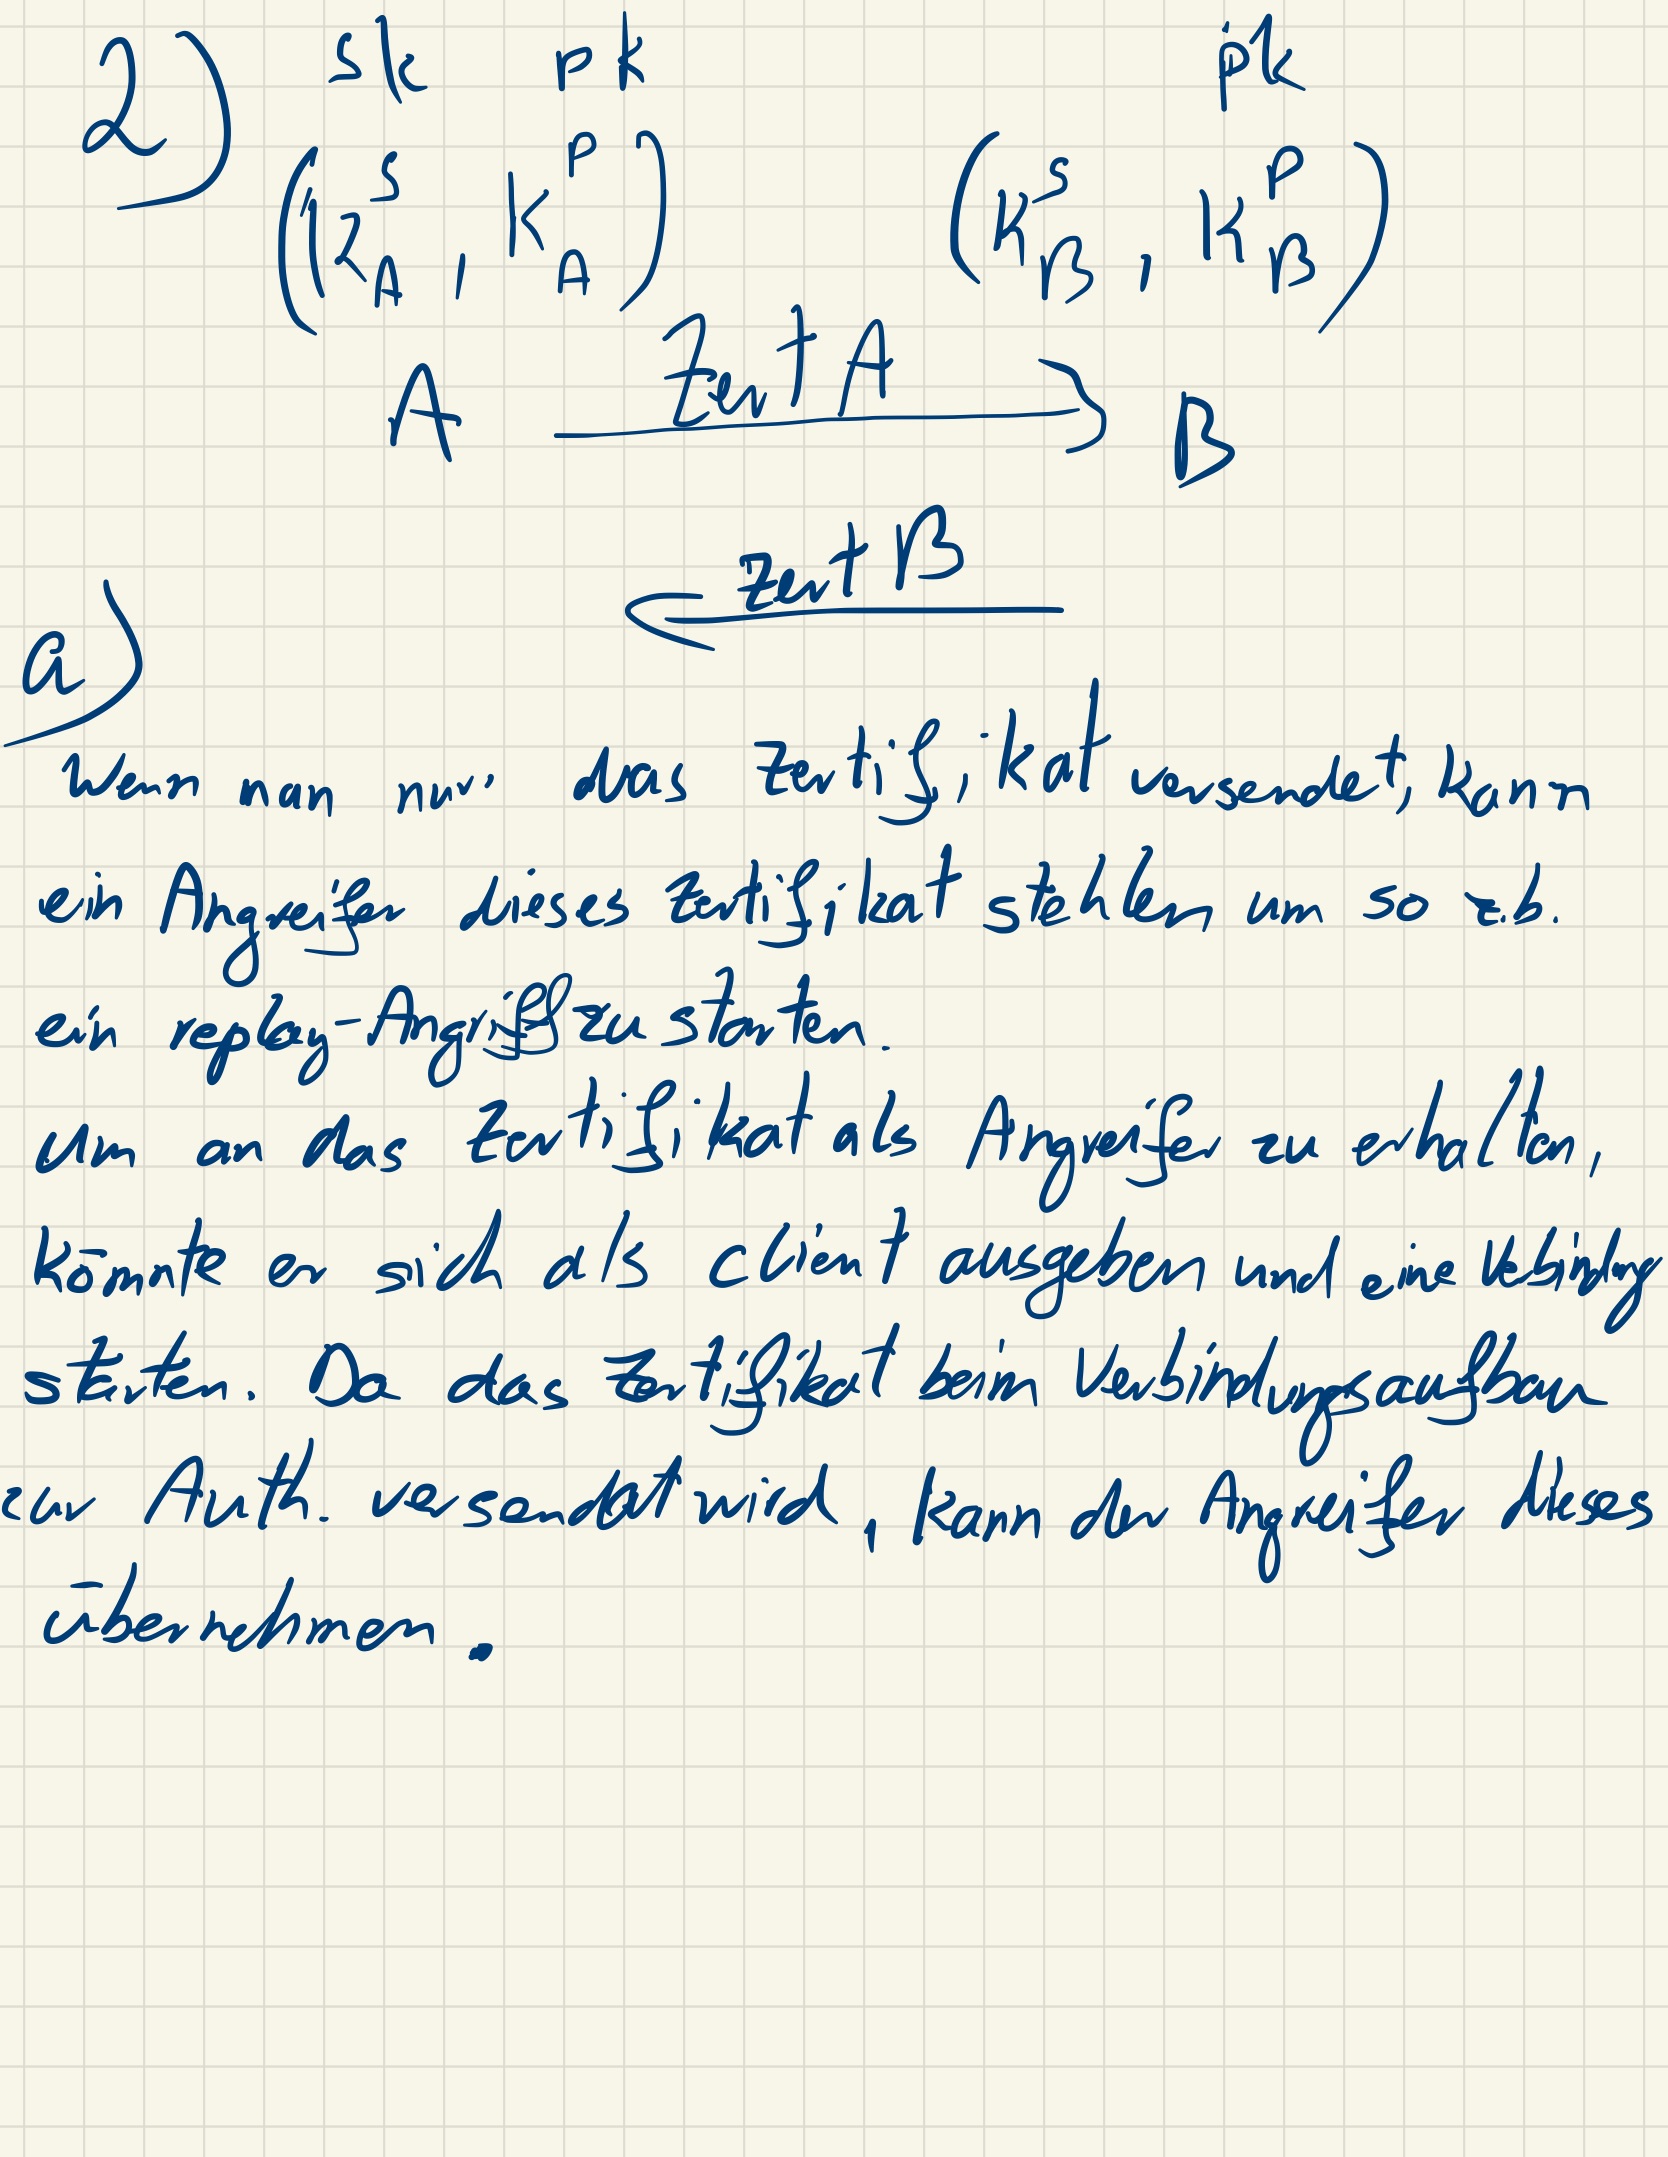 2) sk pk pk
(K_A^S, K_A^P) (K_B^S, K_B^P)
A Zert A B
zert B
a)
Wenn man nur das Zertifikat versendet, kann
ein Angreifer dieses Zertifikat stehlen um so z.b.
ein replay-Angriff zu starten.
Um an das Zertifikat als Angreifer zu erhalten,
könnte er sich als Client ausgeben und eine Verbindung
starten. Da das Zertifikat beim Verbindungsaufbau
zur Auth. versendet wird, kann der Angreifer dieses
übernehmen.